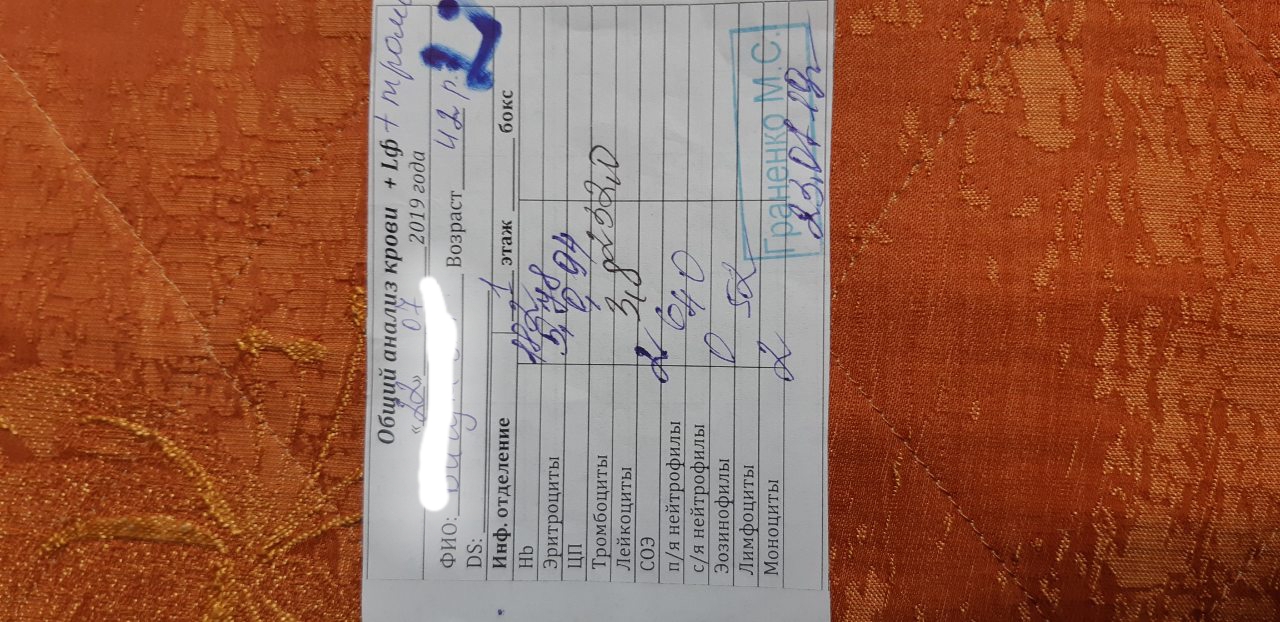 Общий анализ крови + Lф + тром
«22» 07 2019 года
ФИО: Возраст 42 р.
DS:
Инф. отделение 1 этаж бокс
Hb
Эритроциты 5,48
ЦП 0,94
Тромбоциты 232,0
Лейкоциты 3,8
СОЭ 2
п/я нейтрофилы
с/я нейтрофилы
Эозинофилы 0
Лимфоциты 52
Моноциты 2
Граненко М.С.